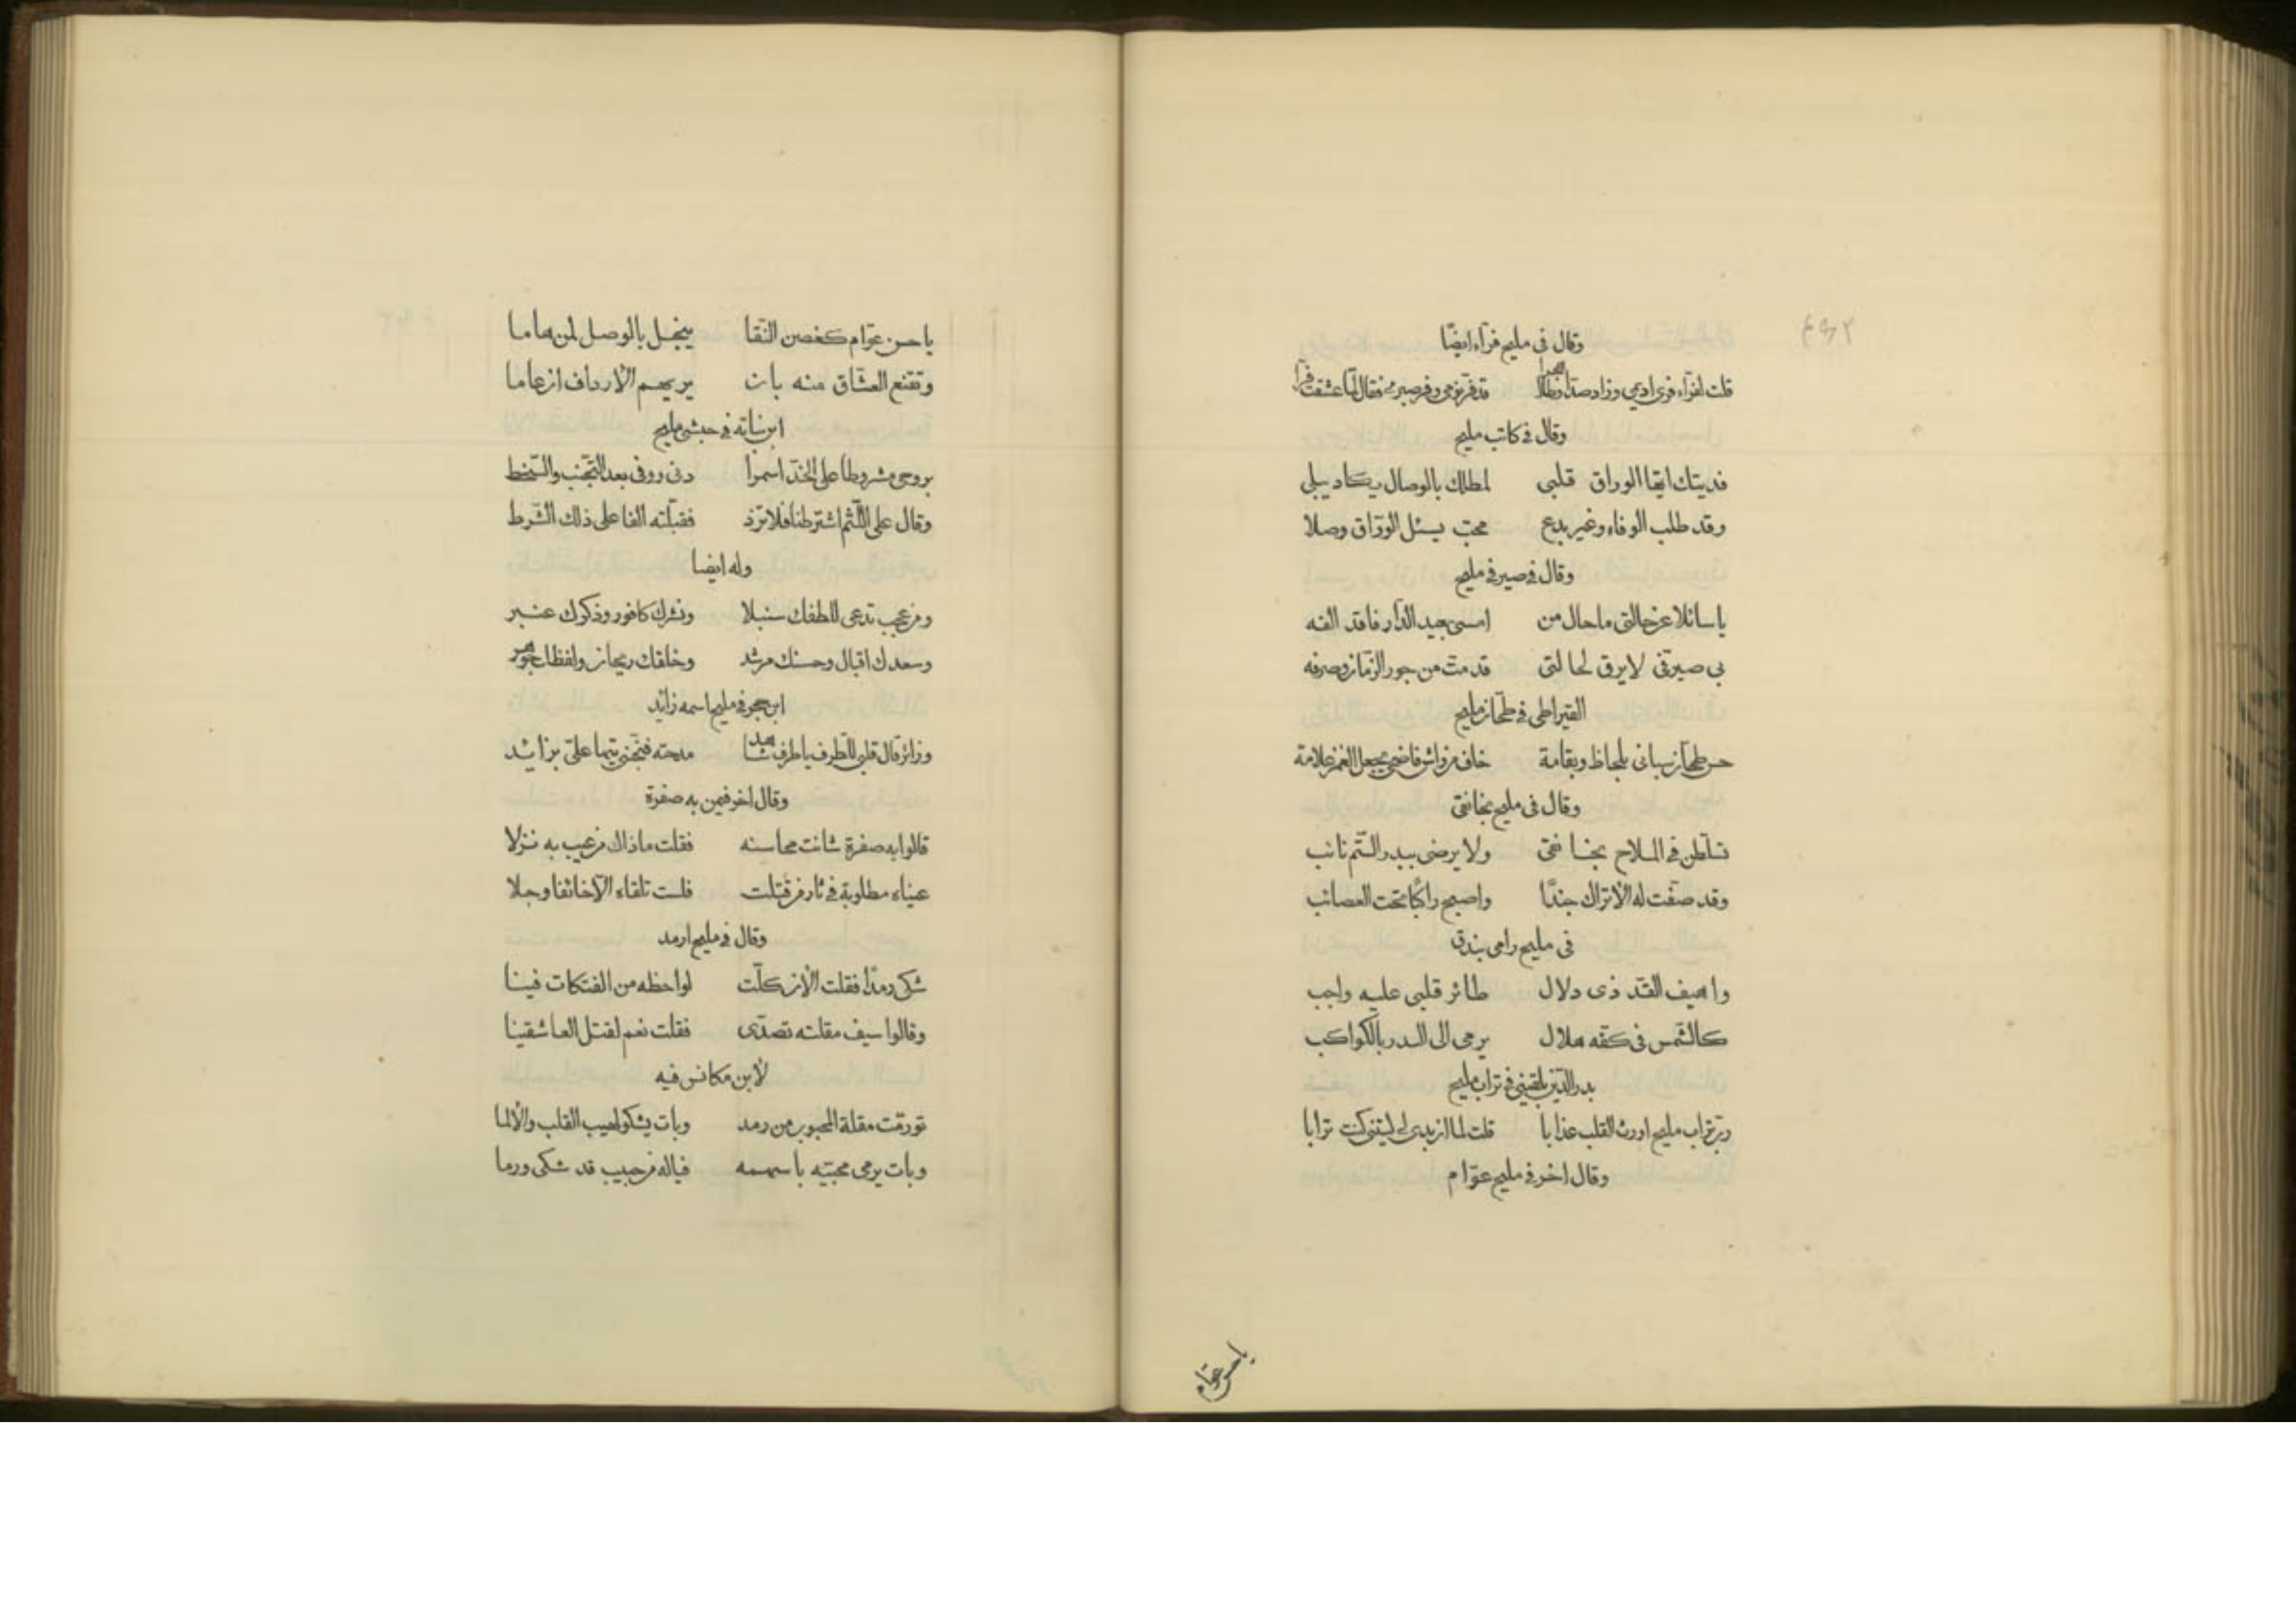 ٤٩٢
وقال فى مليح فرّاء ايضًا
قلت لفرّاء فرى اديمى وزاد صدّا وطال هجرا قد فرّ نومى وفر صبرى فقال لمّا عشقت فرّا
وقال فى كاتب مليح
فديتك ايّها الوراق قلبى لمطلك بالوصال يكاد يبلى
وقد طلب الوفاء وغير بدع محبّ يسئل الورّاق وصلا
وقال فى صيرفى مليح
يا سائلا عن حالتى ما حال من امسى بعيد الدّار فاقد الفه
بى صيرفى لا يرق لحالتى قد متّ من جور الزّمان وصرفه
القيراطى فى طحّان مليح
حسن طحّان سبانى بلحاظ وبقامة خاف من واش فاضحى يجعل الغمز علامة
وقال فى مليح بخانقى
تسلطن فى الملاح بخانقى ولا يرضى ببدر التّم نائب
وقد صفّت له الاتراك جندًا واصبح راكبًا تحت العصائب
فى مليح رامى بندق
واهيف القدّ ذى دلال طائر قلبى عليه واجب
كالشّمس فى كفّه هلال يرمى الى البدر بالكواكب
بدر الدّين بلقينى فى ترّاب مليح
ربّ ترّاب مليح اورث القلب عذابا قلت لما ان بدى لى ليتنى كنت ترابا
وقال اخر فى مليح عوّام
يا حسن عوّام
يا حسن عوّام كغصن النّقا يبخل بالوصل لمن هاما
وتقنع العشّاق منه بان يريهم الارداف ان عاما
ابن نباته فى حبشى مليح
بروحى مشروطا على الخدّ اسمرا دنى ووفى بعد التّجنّب والسّخط
وقال على اللّثم اشترطنا فلا تزد فقبّلته الفا على ذلك الشّرط
وله ايضا
ومن عجب تدعى للطفك سنبلا ونشرك كافور وذكرك عنبر
وسعدك اقبال وحسنك مرشد وخلقك ريحان ولفظك جوهر
ابن حجر فى مليح اسمه زائد
وزائر قال قلبى للطّرف يا طرف شاهد مدحته فتجنى تيها علىّ بزائد
وقال اخر فيمن به صفرة
قالوا به صفرة شانت محاسنه فقلت ما ذاك من عيب به نزلا
عيناه مطلوبة فى ثار من قتلت فلست تلقاه الّا خائفا وجلا
وقال فى مليح ارمد
شكى رمدًا فقلت الان كلّت لواحظه من الفتكات فينا
وقالوا سيف مقلته تصدّى فقلت نعم لقتل العاشقينا
لابن مكانس فيه
تورّقت مقلة المحبوب من رمد وبات يشكو لهيب القلب والألما
وبات يرمى محبّيه باسهمه فياله من حبيب قد شكى ورما